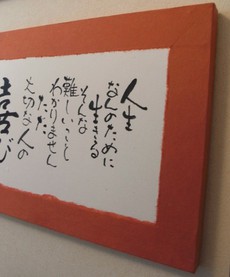 人生
なんのために
生きる
そんな
難しいこと
わかりません
ただ
大切な人の
喜び